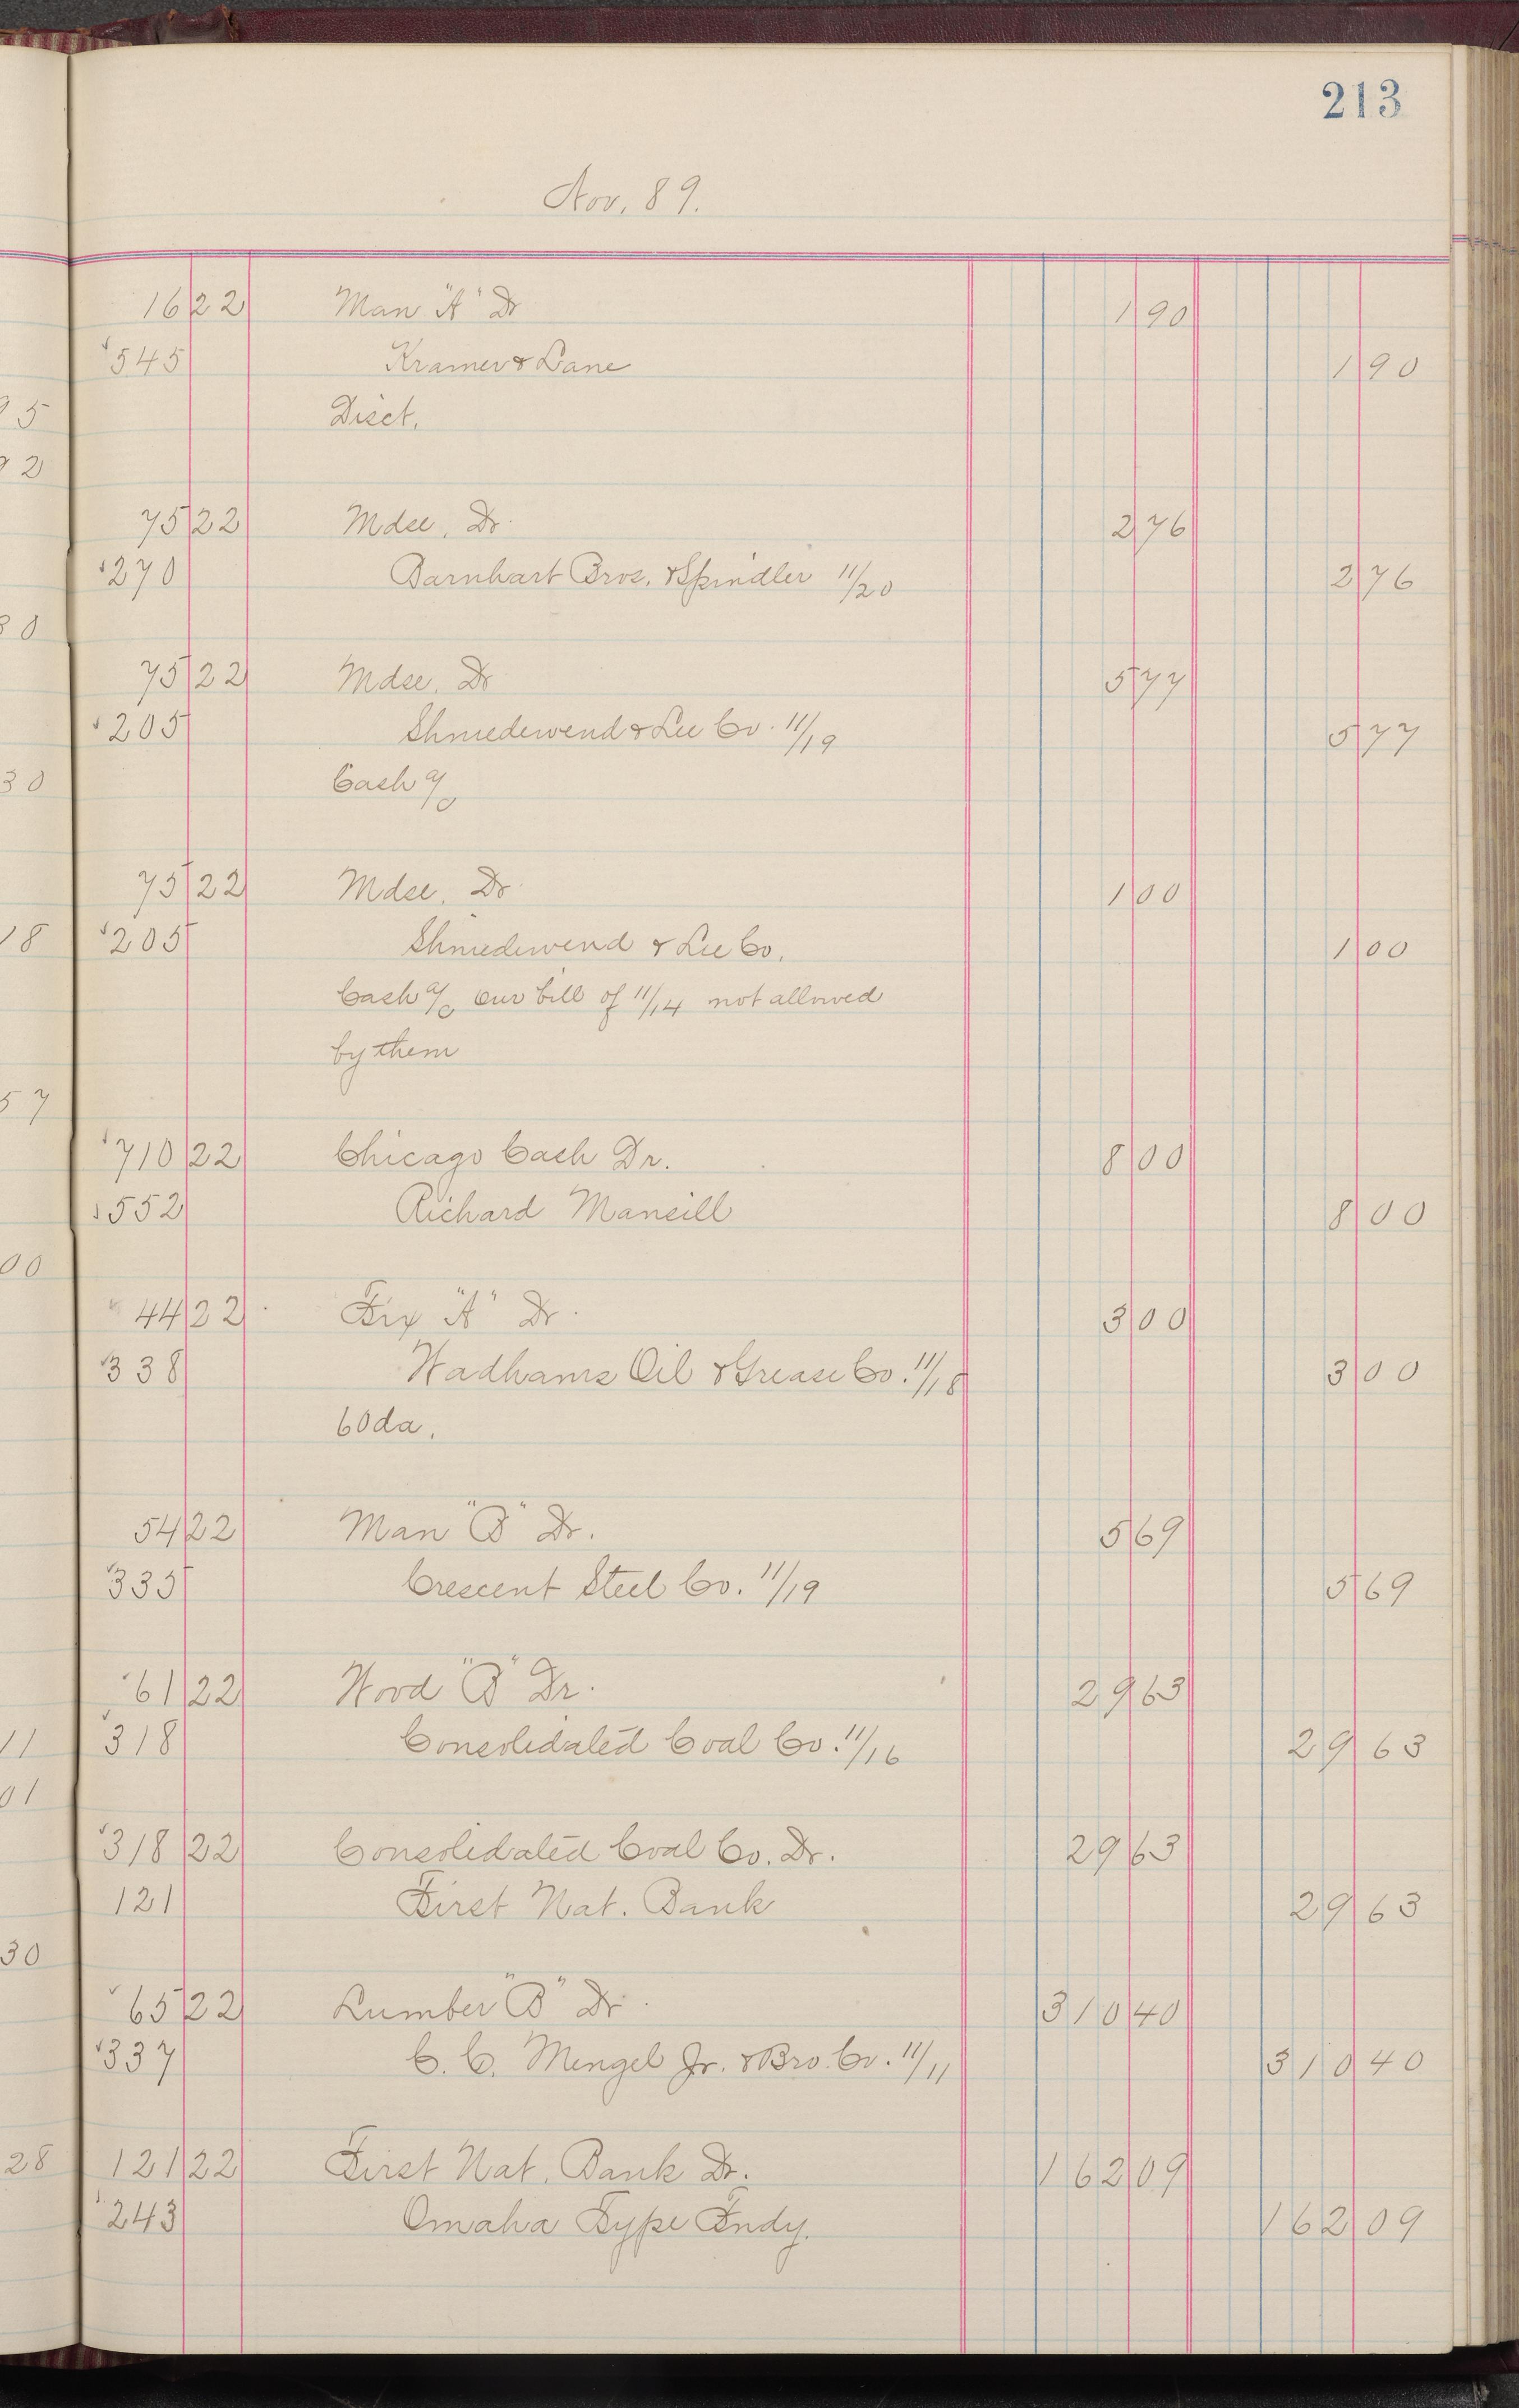 213
Nov. 89.
16 22 Man "A" Dr 1 90
545 Kramer & Lane 1 90
Disct.
75 22 Mdse. Dr. 2 76
270 Barnhart Bros. & Spindler 11/20 2 76
75 22 Mdse. Dr 5 77
205 Shniedewend & Lee Co. 11/19 5 77
Cash a/c
75 22 Mdse. Dr 1 00
205 Shniedewend & Lee Co. 1 00
Cash a/c our bill of 11/14 not allowed
by them
710 22 Chicago Cash Dr. 8 00
552 Richard Mansill 8 00
44 22 Fix "A" Dr. 3 00
338 Wadhams Oil & Grease Co. 11/18 3 00
60 da.
54 22 Man "B" Dr. 5 69
335 Crescent Steel Co. 11/19 5 69
61 22 Wood "B" Dr. 29 63
318 Consolidated Coal Co. 11/16 29 63
318 22 Consolidated Coal Co. Dr. 29 63
121 First Nat. Bank 29 63
65 22 Lumber "B" Dr. 310 40
337 C. C. Mengel Jr. & Bro. Co. 11/11 310 40
121 22 First Nat. Bank Dr. 162 09
243 Omaha Type Fndy. 162 09